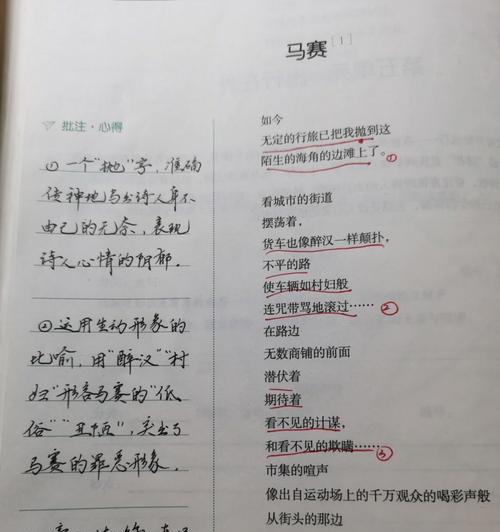 马赛[1]
批注·心得
①一个“抛”字，准确
传神地写出诗人身不
由己的无奈，表现
诗人心情的阴郁．
②运用生动形象的
比喻，用“醉汉”“村
妇”形容马赛的“低
俗”“丑陋”，突出了
马赛的罪恶形象．
如今
无定的行旅已把我抛到这
陌生的海角的边滩上了。①
看城市的街道
摆荡着，
货车也像醉汉一样颠扑，
不平的路
使车辆如村妇般
连咒带骂地滚过……②
在路边
无数商铺的前面
潜伏着
期待着
看不见的计谋，
和看不见的欺瞒……③
市集的喧声
像出自运动场上的千万观众的喝彩声般
从街头的那边